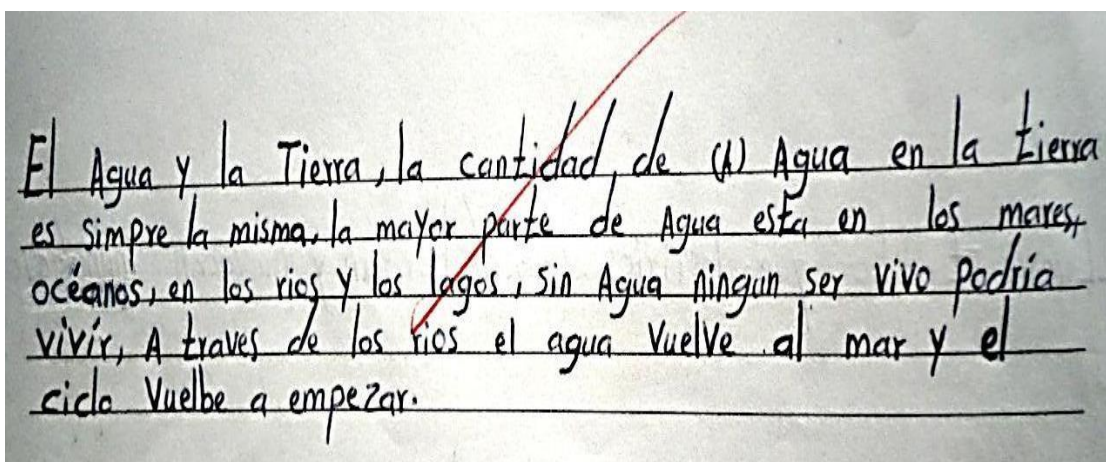 El Agua y la Tierra, la cantidad, de (A) Agua en la tierra
es simpre la misma, la mayor parte de Agua esta en los mares,
océanos, en los rios y los lagos, sin Agua ningun ser vivo podría
vivír, A traves de los rios el agua vuelve al mar y el
ciclo Vuelbe a empezar.